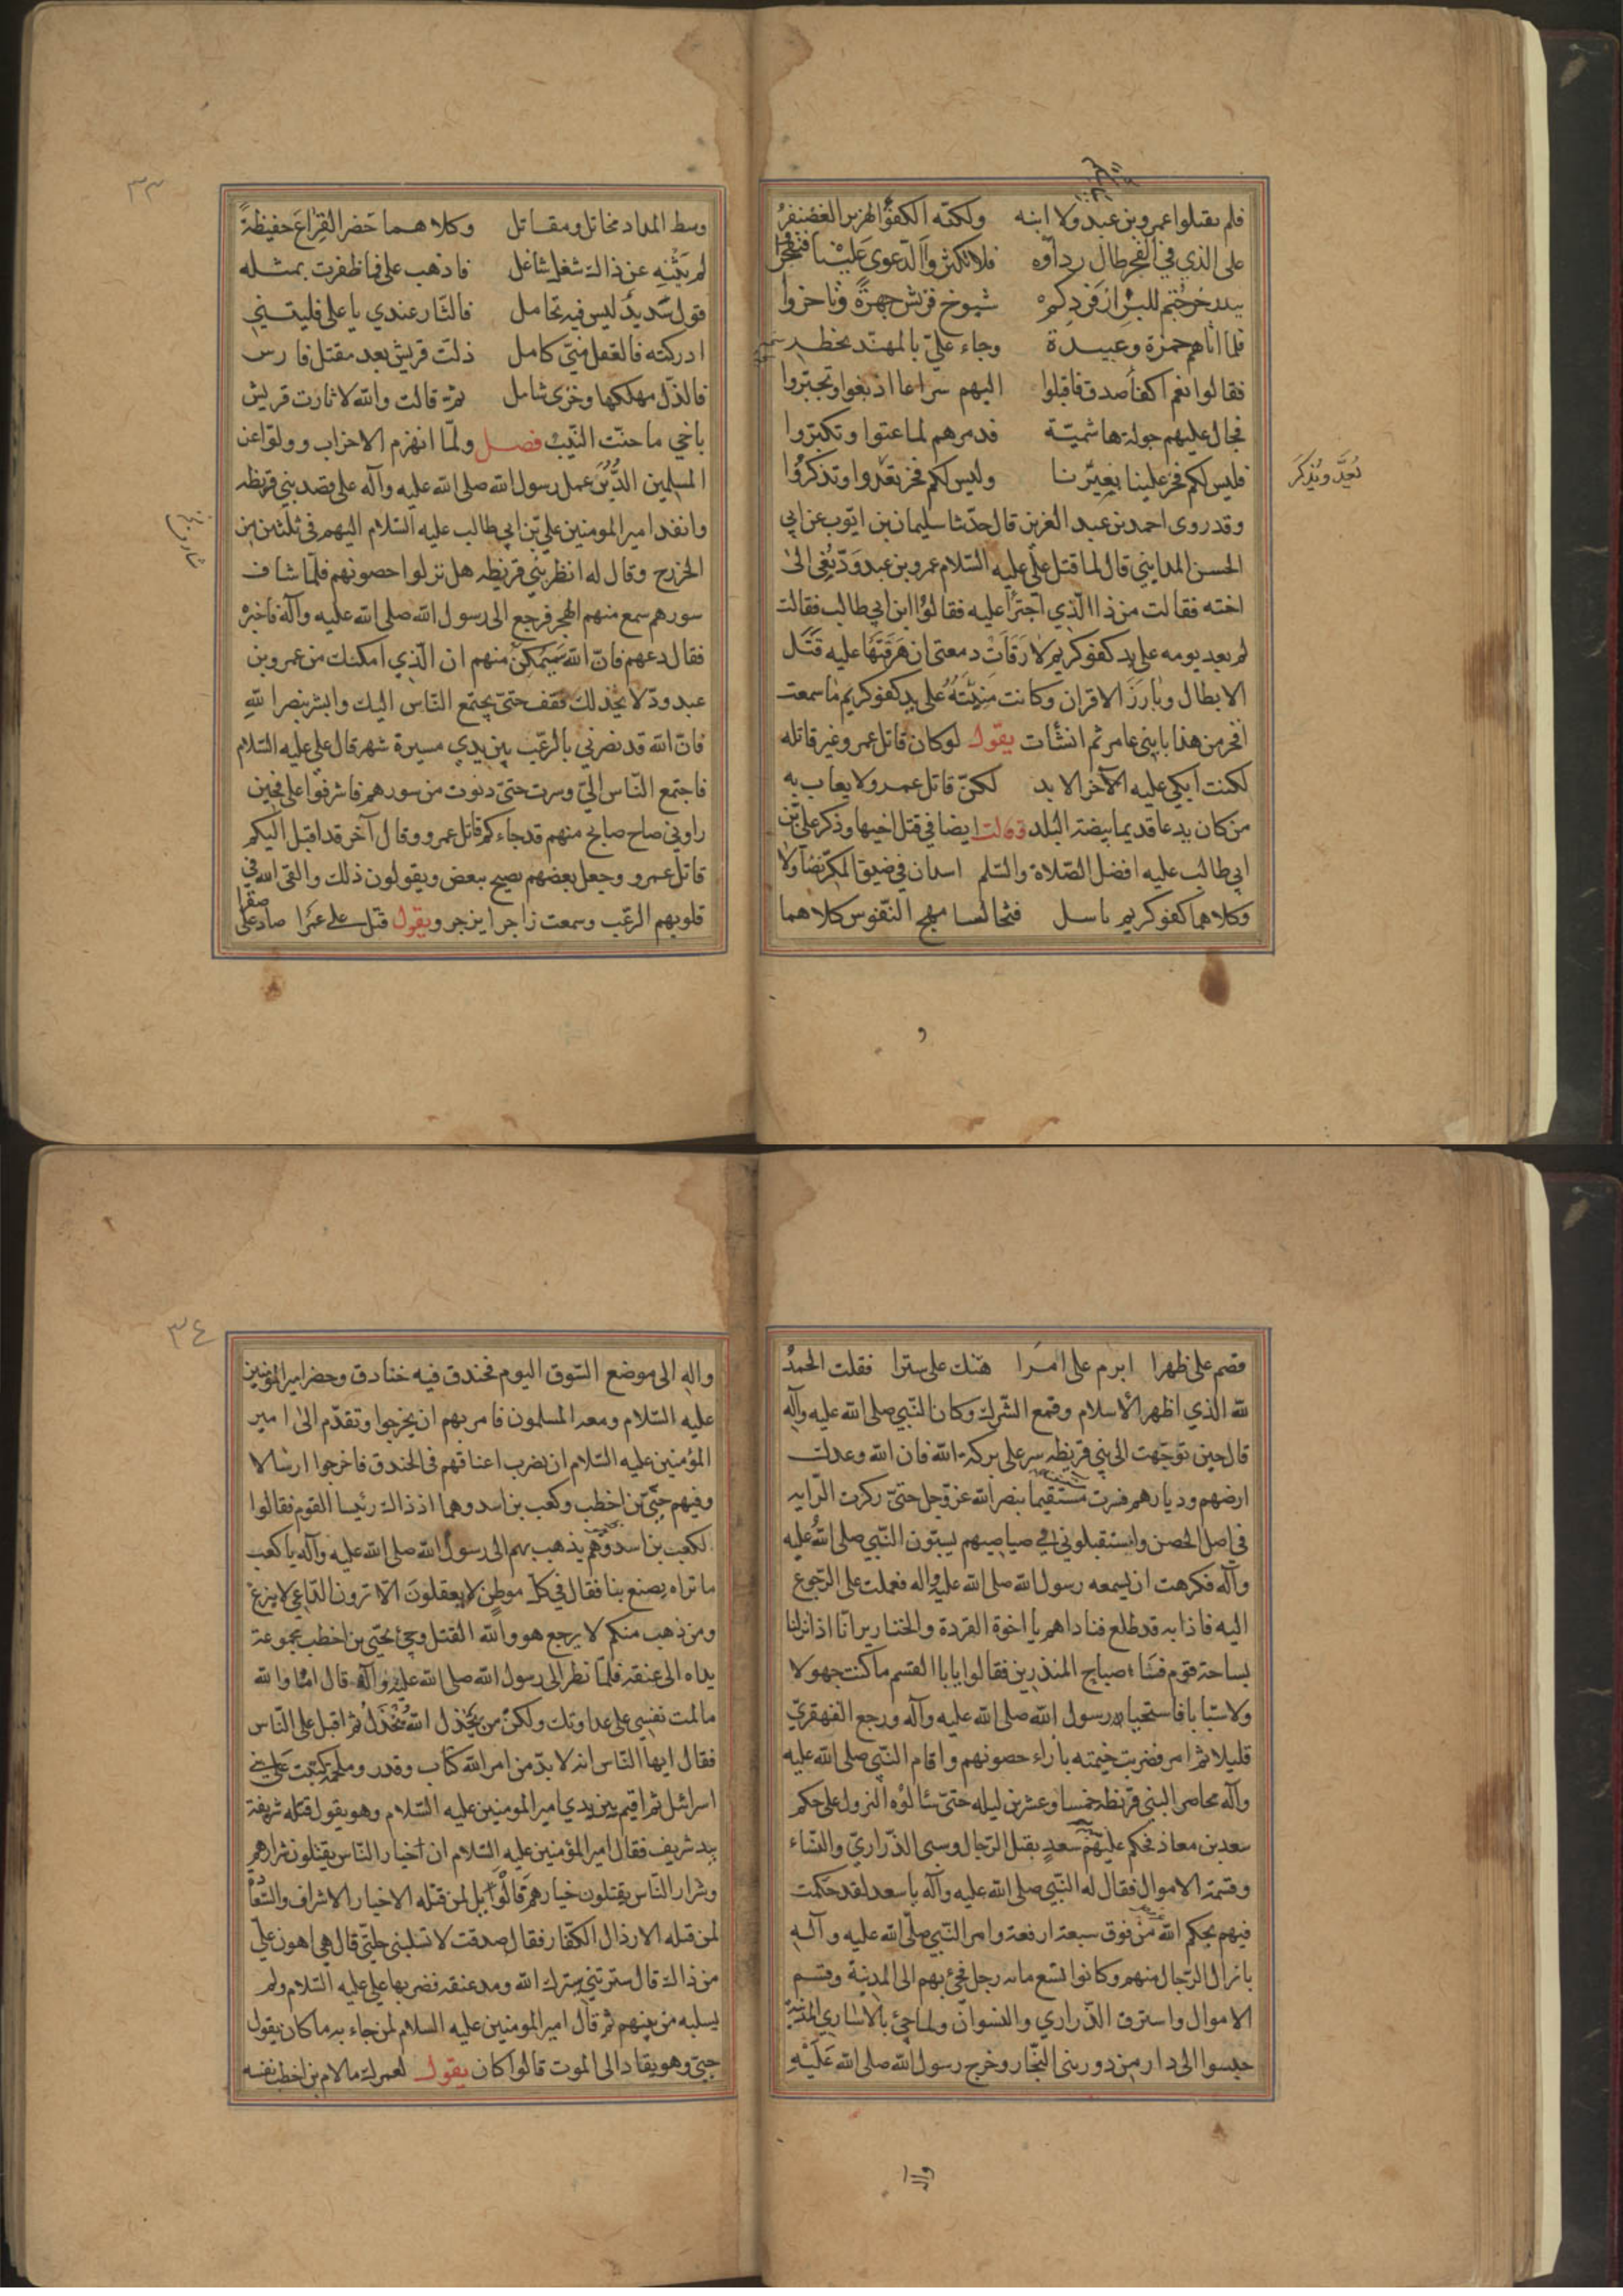 فلم يقتلوا عمرو بن عبد ولا ابنه ولكنه الكفؤ الهزبر الغضنفر
على الذي في الفخر طال رداؤه فلا تكثروا الدعوى علينا فتفخروا
ببدر خرجتم للبراز فردكم شيوخ قريش جهرة وتاخروا
فلما اتاهم حمزة وعبيدة وجاء علي بالمهند يخطر
فقالوا نعم اكفأ صدق فاقبلوا اليهم سراعا اذ بغوا وتجبروا
فجال عليهم جولة هاشمية فدمرهم لما عتوا وتكبروا
فليس لكم فخر علينا بغيرنا وليس لكم فخر يعدوا وتذكروا
يُعَدّ ويُذكر
وقد روى احمد بن عبد العزيز قال حدثنا سليمان بن ايوب عن ابي
الحسن المدايني قال لما قتل علي عليه السلام عمرو بن عبد ود نعي الى
اخته فقالت من ذا الذي اجترأ عليه فقالوا ابن ابي طالب فقالت
لم يعد يومه على يد كفو كريم لا رقات دمعتي ان هرقتها عليه قتل
الابطال وبارز الاقران وكانت منيته على يد كفو كريم ما سمعت
افخر من هذا يا بني عامر ثم انشأت يقول لو كان قاتل عمرو غير قاتله
لكنت ابكي عليه الآخر الابد لكن قاتل عمرو لا يعاب به
من كان يدعا قديما بيضة البلد وقالت ايضا في قتل اخيها وذكر علي بن
ابي طالب عليه افضل الصلاة والسلم اسدان في ضيق المكر تصاولا
وكلاهما كفو كريم باسل فتخالسا مهج النفوس كلاهما
٣٣
وسط المداد مخاتل ومقاتل وكلاهما حضر القراع حفيظة
لم يثنه عن ذاك شغل شاغل فاذهب علي فما ظفرت بمثله
قول سديد ليس فيه تحامل فالثار عندي يا علي فليتني
ادركته فالعقل مني كامل ذلت قريش بعد مقتل فارس
فالذل مهلكها وخزى شامل ثم قالت والله لا ثارت قريش
باخي ما حنت النيب فصل ولما انهزم الاحزاب وولوا عن
المسلمين الدبر عمل رسول الله صلى الله عليه وآله على قصد بني قريظه
وانفد امير المومنين علي بن ابي طالب عليه السلام اليهم في ثلثين من
الخزرج وقال له انظر بني قريظه هل نزلوا حصونهم فلما شاف
سورهم سمع منهم الهجر فرجع الى رسول الله صلى الله عليه وآله فاخبره
فقال دعهم فان الله سيمكن منهم ان الذي امكنك من عمرو بن
عبد ود لا يخذلك فقف حتى يجتمع الناس اليك وابشر بنصر الله
فان الله قد نصرني بالرعب بين يدي مسيرة شهر قال علي عليه السلام
فاجتمع الناس الي وسرت حتى دنوت من سورهم فاشرفوا على فحين
راوني صاح صايح منهم قد جاءكم قاتل عمرو وقال آخر قد اقبل اليكم
قاتل عمرو وجعل بعضهم يصيح ببعض ويقولون ذلك والقى الله في
قلوبهم الرعب وسمعت زاجرا يزجر ويقول قتل علي عمرا صاد علي صقرا
قصم علي ظهرا ابرم علي امرا هتك علي سترا فقلت الحمد
لله الذي اظهر الاسلام وقمع الشرك وكان النبي صلى الله عليه وآله
قال حين توجهت الى بني قريظه سر على بركة الله فان الله وعدك
ارضهم وديارهم فسرت مستقيما بنصر الله عز وجل حتى ركزت الرايه
في اصل الحصن واستقبلوني في صياصيهم يسبون النبي صلى الله عليه
وآله فكرهت ان يسمعه رسول الله صلى الله عليه واله فعملت على الرجوع
اليه فاذا به قد طلع فناداهم يا اخوة القردة والخنازير انا اذا نزلنا
بساحة قوم فساء صباح المنذرين فقالوا يا با القسم ما كنت جهولا
ولا سبابا فاستحيا رسول الله صلى الله عليه وآله ورجع القهقري
قليلا ثم امر فضربت خيمته بازاء حصونهم واقام النبي صلى الله عليه
وآله محاصر البني قريظه خمسا وعشرين ليله حتى سالوه النزول على حكم
سعد بن معاذ فحكم عليهم سعد بقتل الرجال وسبى الذراري والنساء
وقسمة الاموال فقال له النبي صلى الله عليه وآله يا سعد لقد حكمت
فيهم بحكم الله من فوق سبعة ارقعة وامر النبي صلى الله عليه وآله
بانزال الرجال منهم وكانوا تسع مائه رجل فجئ بهم الى المدينة وقسم
الاموال واسترق الذراري والنسوان ولما جئ بالاسارى المدينة
حبسوا الى دار من دور بنى النجار وخرج رسول الله صلى الله عليه
واله
٣٤
واله الى موضع السوق اليوم فخندق فيه خنادق وحضر امير المؤمنين
عليه السلام ومعه المسلمون فامر بهم ان يخرجوا وتقدم الى امير
المؤمنين عليه السلام ان يضرب اعناقهم في الخندق فاخرجوا ارسالا
وفيهم حيي بن اخطب وكعب بن اسد وهما اذ ذاك رئيسا القوم فقالوا
لكعب بن اسد وهم يذهب بهم الى رسول الله صلى الله عليه وآله يا كعب
ما تراه يصنع بنا فقال في كل موطن لا يعقلون الا ترون الداعي لا ينزع
ومن ذهب منكم لا يرجع هو والله القتل وجئ بحيي بن اخطب مجموعة
يداه الى عنقه فلما نظر الى رسول الله صلى الله عليه وآله قال اما والله
ما لمت نفسي على عداوتك ولكن من يخذل الله يخذل ثم اقبل على الناس
فقال ايها الناس انه لا بد من امر الله كتاب وقدر وملحمة كتبت على بني
اسرائل ثم اقيم بين يدي امير المومنين عليه السلام وهو يقول قتله شريفة
بيد شريف فقال امير المؤمنين عليه السلام ان اخيار الناس يقتلون شرارهم
وشرار الناس يقتلون خيارهم قالوا بل لمن قتله الاخيار الاشراف والسعادة
لمن قتله الارذال الكفار فقال صدقت لا تسلبني حلتي قال هي اهون علي
من ذاك قال سترتني سترك الله ومد عنقه فضربها علي عليه السلام ولم
يسلبه من بينهم ثم قال امير المومنين عليه السلام لمن جاء به ما كان يقول
حيي وهو يقاد الى الموت قالوا كان يقول لعمرك ما لام بن اخطب نفسه